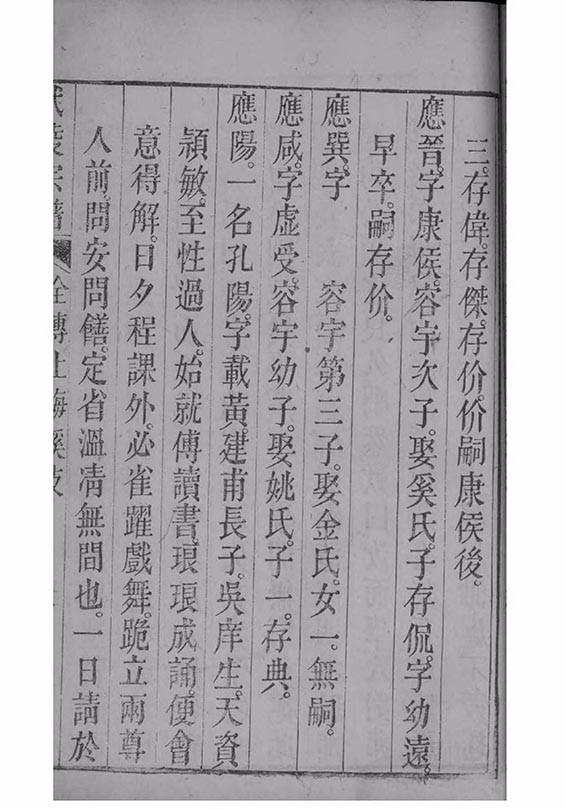 三。存偉。存傑。存价。价嗣康侯後。
應晉。字康侯。容宇次子。娶奚氏。子存侃。字幼遠。
早卒。嗣存价。
應巽。字　容宇第三子。娶金氏。女一。無嗣。
應咸。字虛受。容宇幼子。娶姚氏。子一。存典。
應陽。一名孔陽。字載黃。建甫長子。吳庠生。天資
穎敏。至性過人。始就傅讀書。琅琅成誦。便會
意得解。日夕程課外。必雀躍戲舞。跪立兩尊
人前。問安問饍。定省溫凊無間也。一日請於